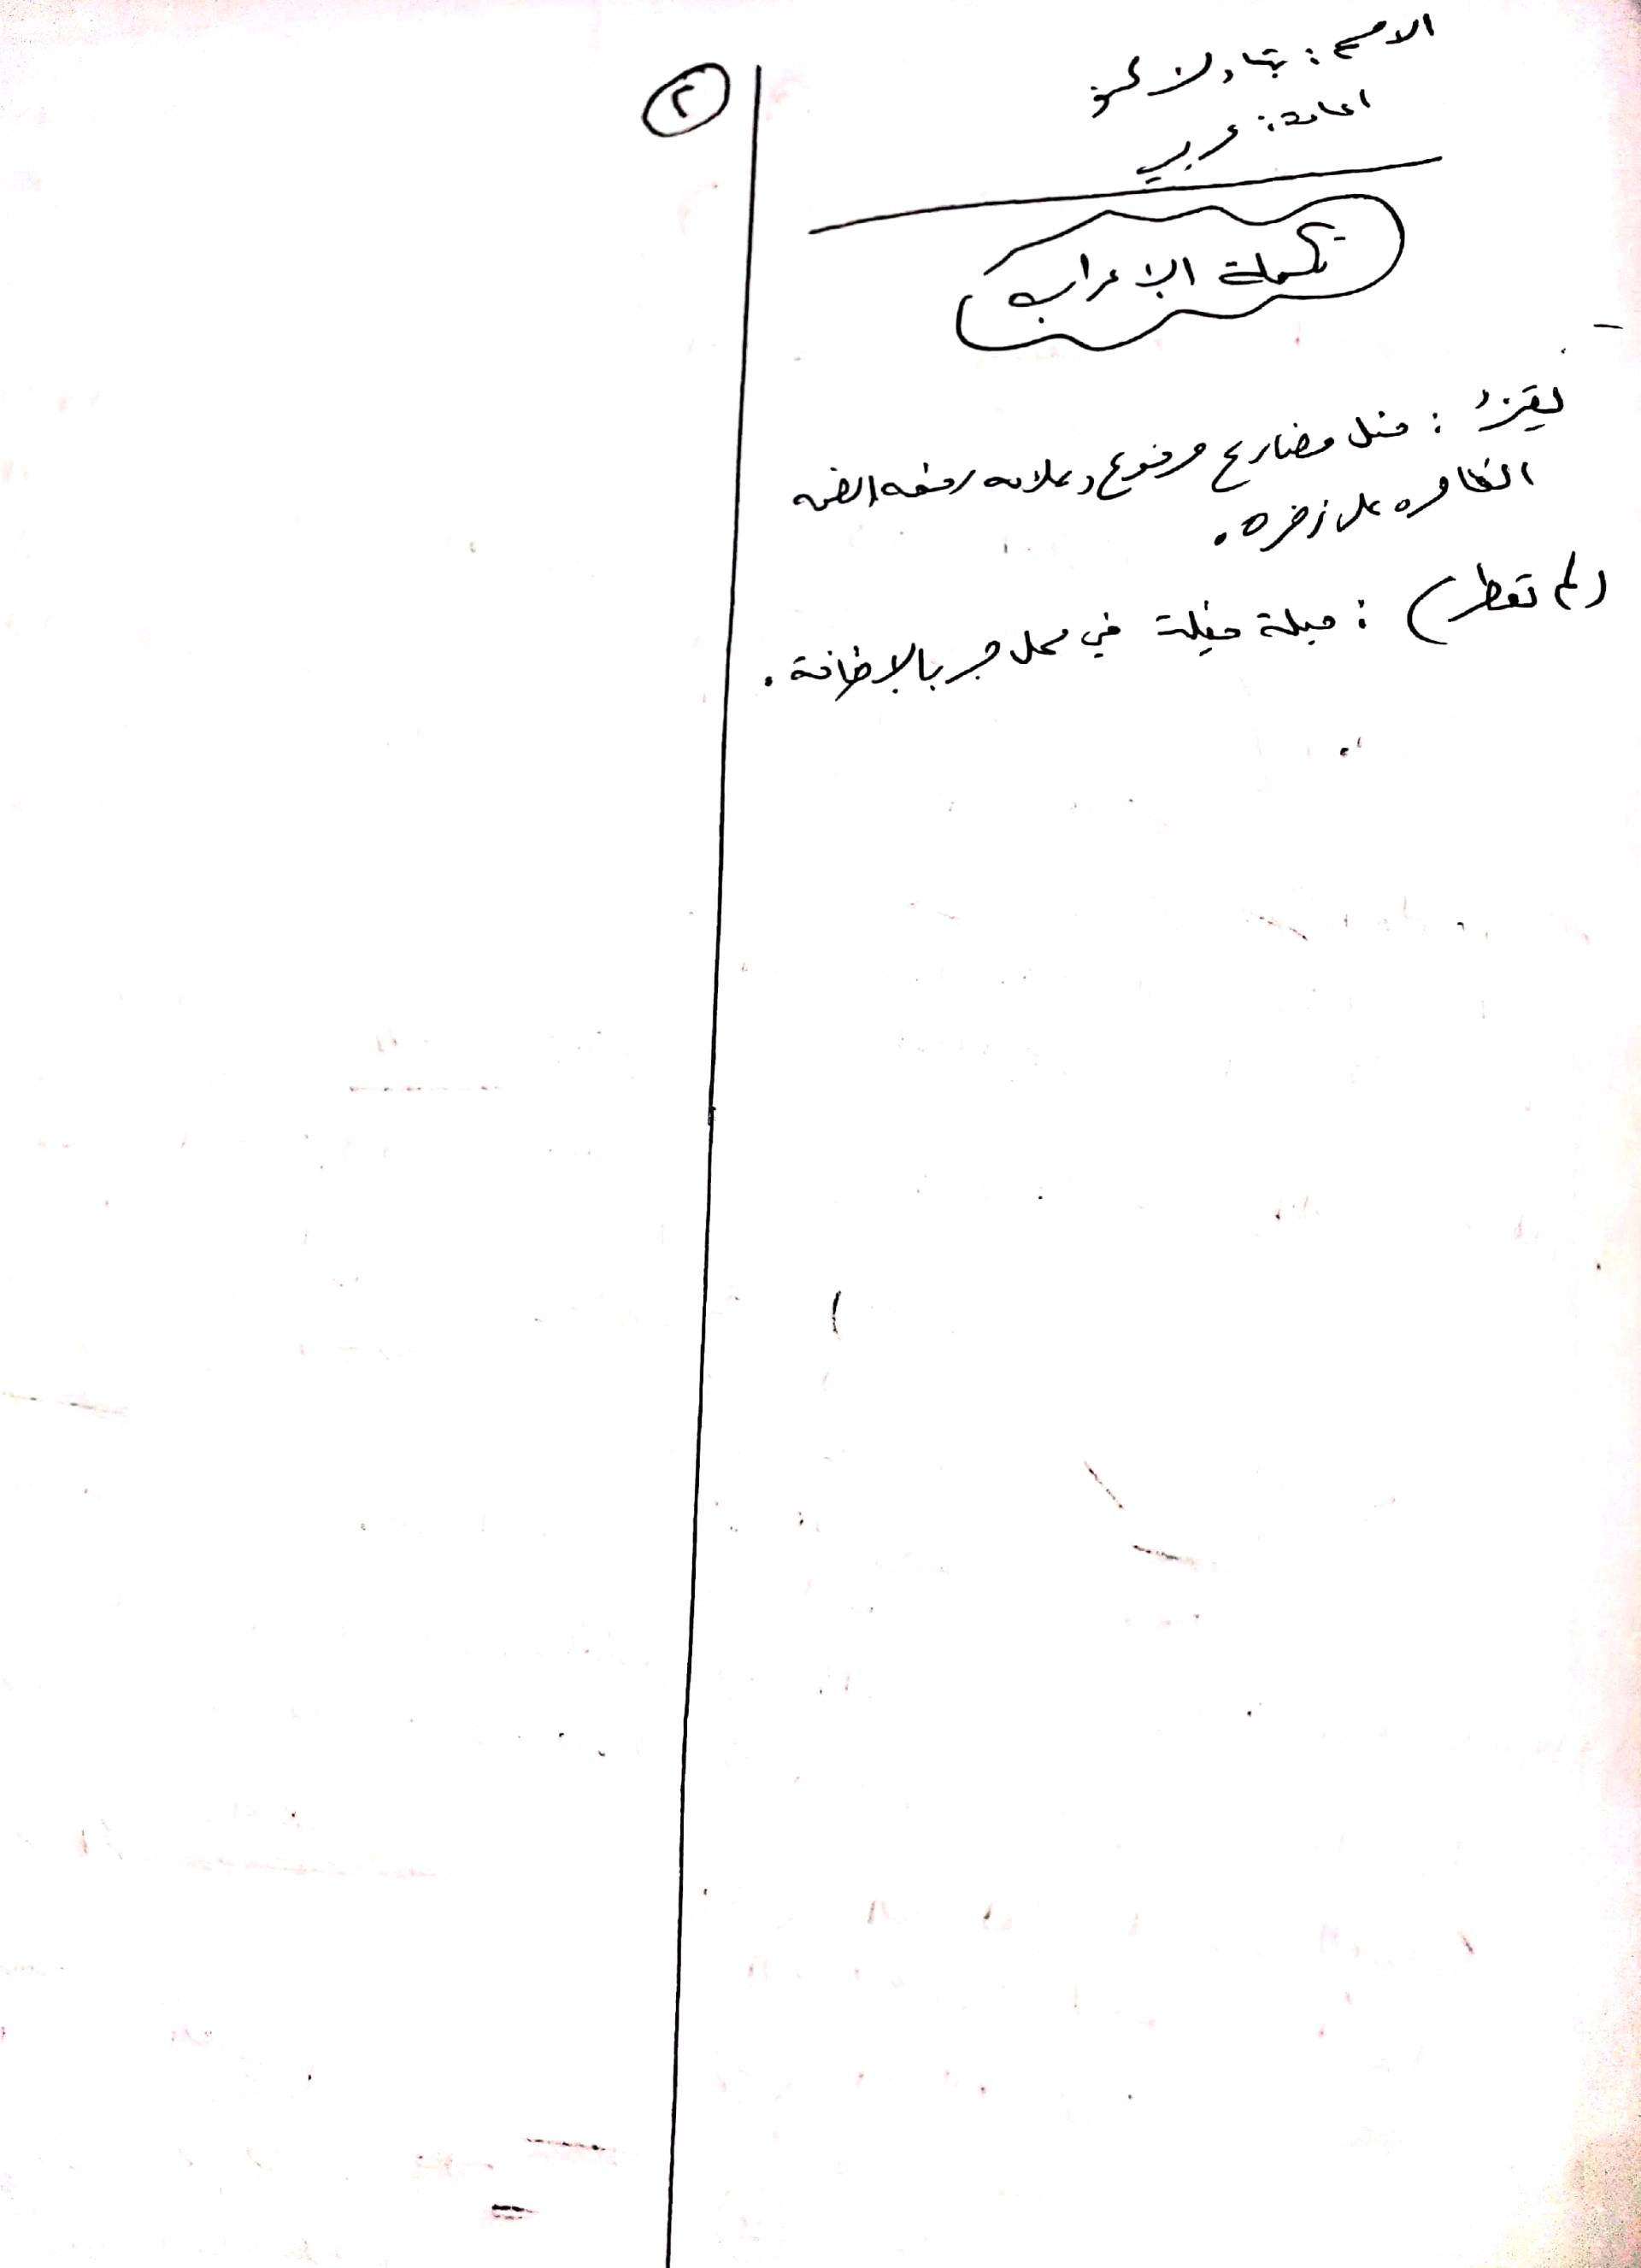 الاسم :
المادة : عربي
٢
تكملة الإعراب
: فعل مضارع مرفوع وعلامه رفعه الضمه
الظاهره على أخره .
(لم تقطر) : جملة فعلية في محل جر بالإضافة .